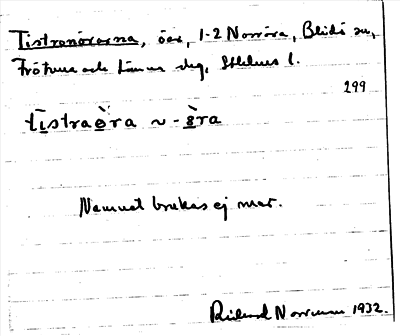 Tistronörarna, öar, 1-2 Norröra, Blidö sn,
Frötuna och Länna skg, Sthlms l.
299
tistraöra ~ -öra
Namnet brukas ej mer.
1932.